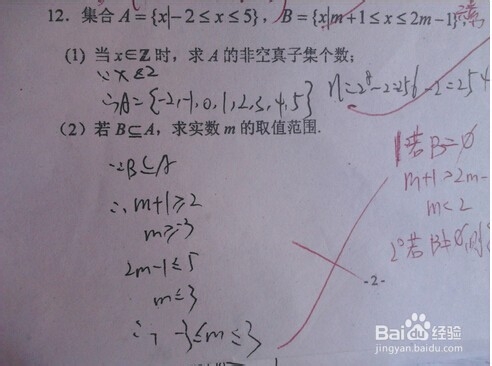 12. 集合 A = {x|−2 ≤ x ≤ 5}，B = {x|m+1 ≤ x ≤ 2m−1}
(1) 当 x∈Z 时，求 A 的非空真子集个数；
∵ x∈Z
∴ A = {-2,-1,0,1,2,3,4,5} n=2⁸-2=256-2=254
(2) 若 B⊆A，求实数 m 的取值范围.
∵B⊆A
∴ m+1≥2
m≥-3
2m-1≤5
m≤3
∴ -3≤m≤3
1°若B=∅
m+1>2m-
m<2
2°若B≠∅,则
-2-
Baidu 经验
jingyan.baidu.com